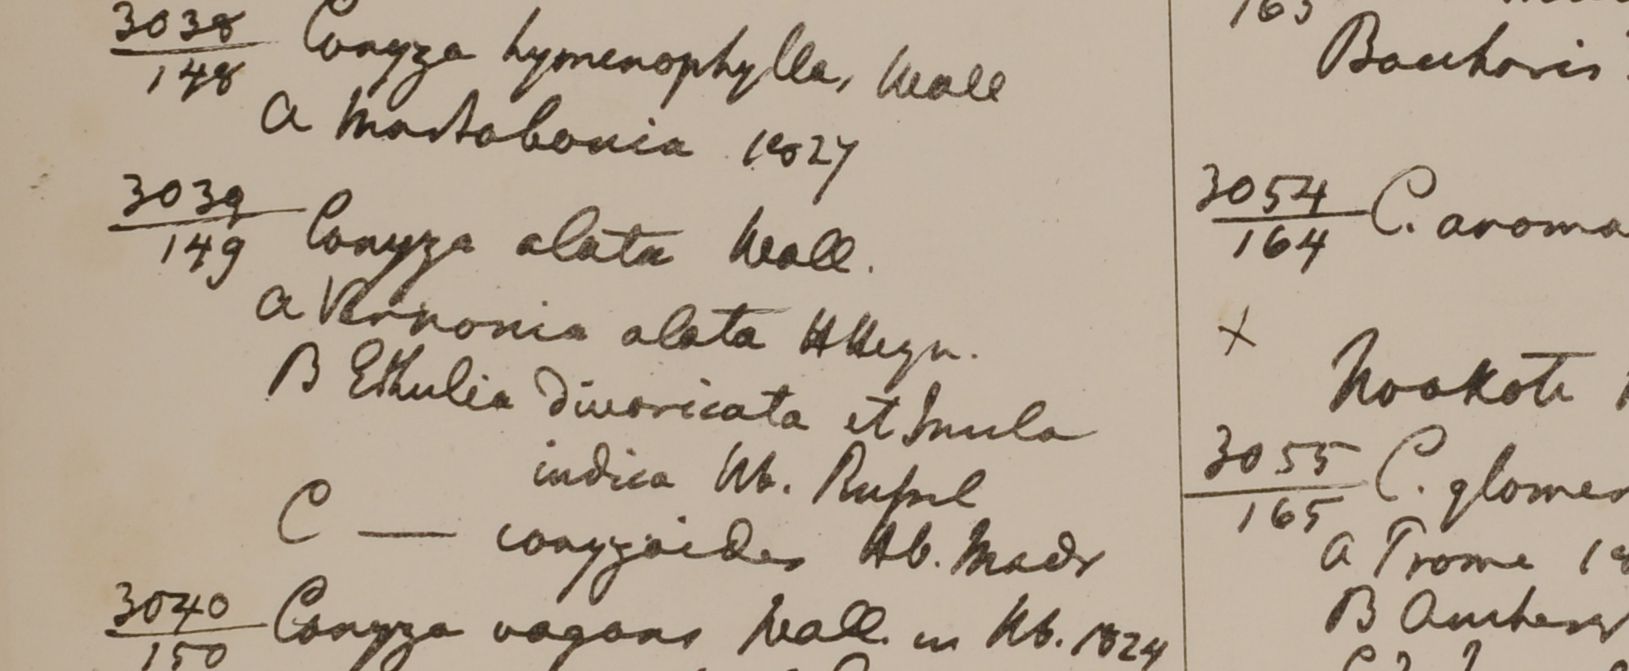 3038
148 Conyza hymenophylla, Wall
a Martabania 1827
3039
149 Conyza alata Wall.
a Vernonia alata HHeyn.
B Ethulia divaricata et Inula
indica Hb. Russel
C — conyzoides Hb. Madr
3040
150 Conyza vagans Wall. in Hb. 1824
163
Baccharis
3054
164 C. aroma
x
Noakote
3055
165 C. glomer
a Prome 18
B Amhers